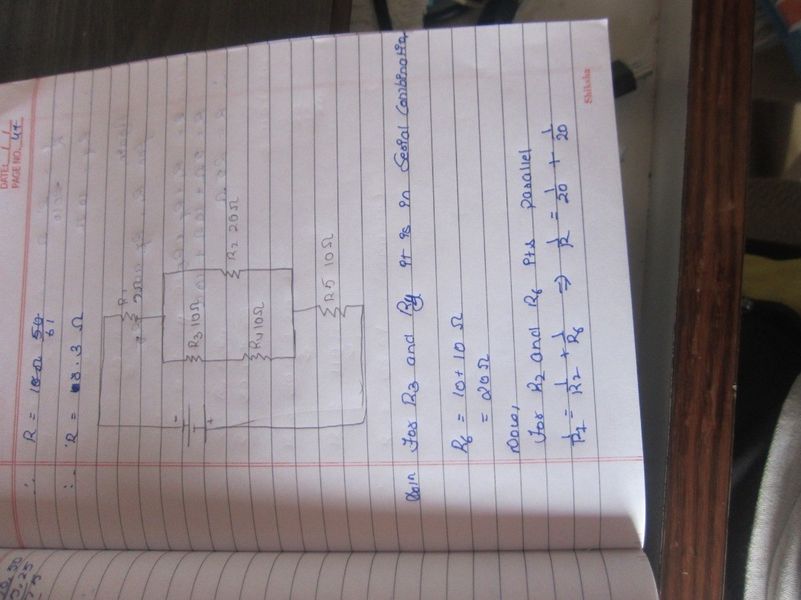 DATE: / /
PAGE NO. 47
∴ R = 50/61
∴ R = 8.3 Ω
R1
2Ω
R3 10Ω
R2 20Ω
R4 10Ω
R5 10Ω
- +
Soln For R3 and R4 it is in Serial Combination
R6 = 10 + 10 Ω
= 20 Ω
Now,
For R2 and R6 its parallel
1/R7 = 1/R2 + 1/R6 ⇒ 1/R = 1/20 + 1/20
Shiksha